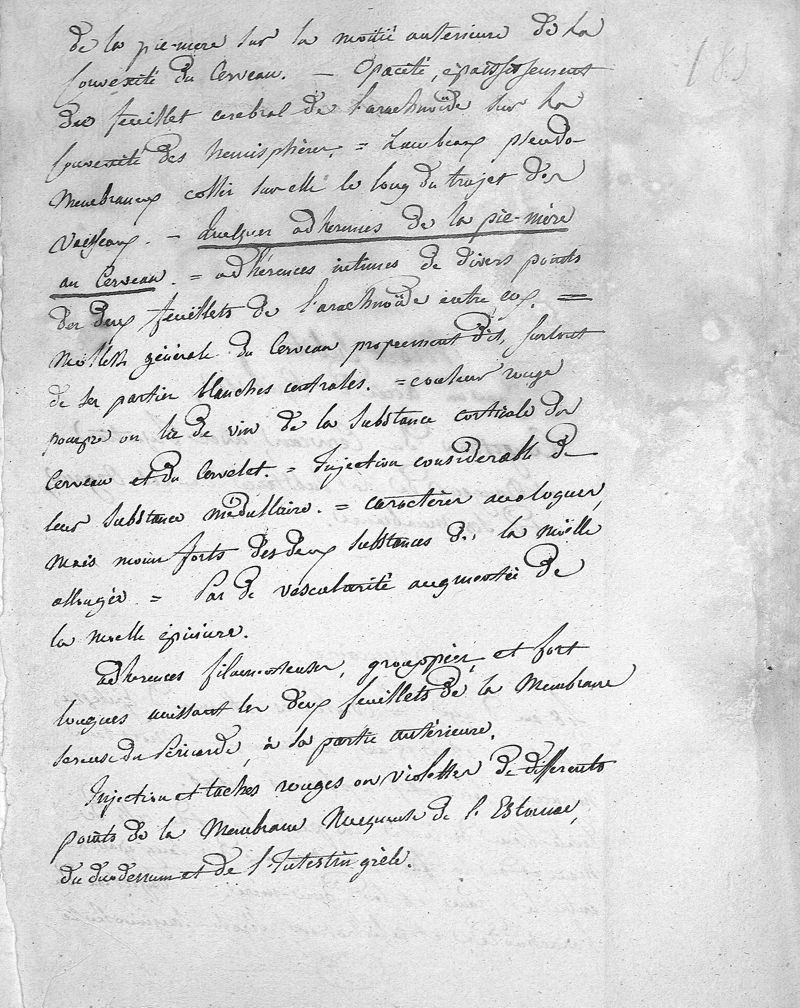 185
de la pie-mere sur la moitié anterieure de la
Convexité du Cerveau. — Opacité, épaississement
du feuillet cerebral de l'arachnoïde sur la
Convexité des hemisphères. = Lambeaux pseudo-
Membraneux collés sur elle le long du trajet des
Vaisseaux. — Quelques adherences de la pie-mère
au Cerveau. = adhérences intimes de divers points
des deux feuillets de l'arachnoïde entre eux. =
Mollesse générale du Cerveau proprement dit, surtout
de ses parties blanches centrales. = couleur rouge
pourpre ou lie de vin de la substance corticale du
Cerveau et du Cervelet. = Injection considerable de
leur substance médullaire. = caractères analogues,
mais moins forts des deux substances de la moëlle
allongée. = Pas de vascularité augmentée de
la moelle épiniere.
adherences filamenteuses, grouppées, et fort
longues unissant les deux feuillets de la Membrane
sereuse du Péricarde, à sa partie antérieure.
Injection et taches rouges ou violettes de differents
points de la Membrane Muqueuse de l'Estomac,
du duodenum et de l'Intestin grèle.